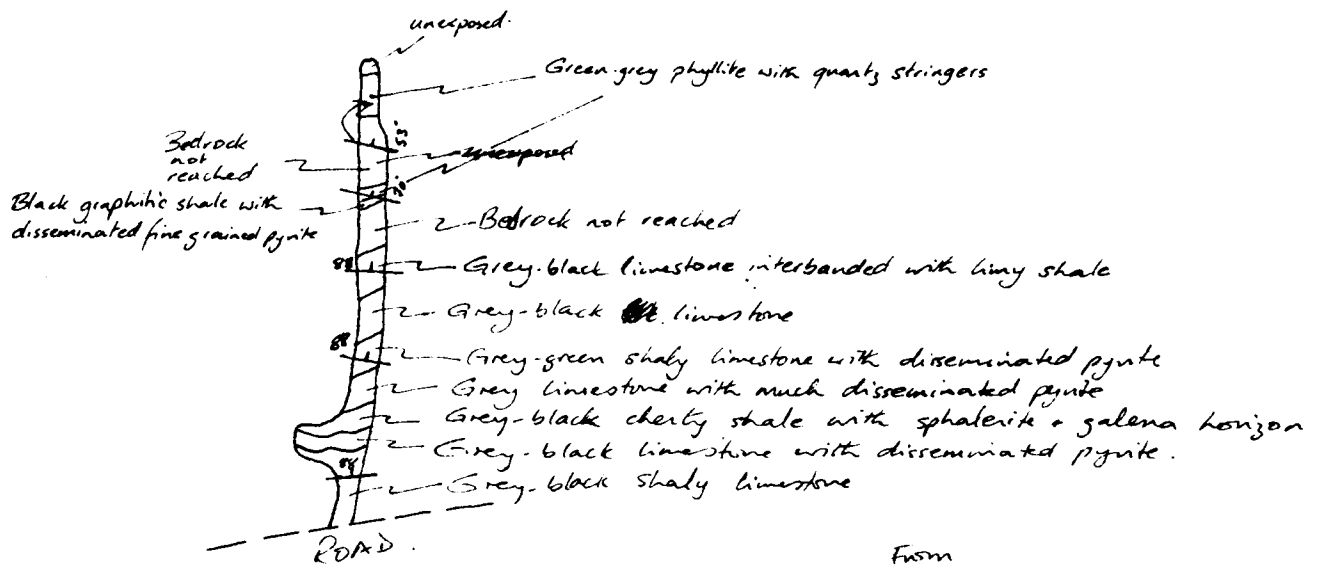 unexposed.
Green-grey phyllite with quartz stringers
53°
Bedrock
not
reached
unexposed
30°
Black graphitic shale with
disseminated fine grained pyrite
Bedrock not reached
Grey-black limestone interbanded with limy shale
Grey-black limestone
88
Grey-green shaly limestone with disseminated pyrite
Grey limestone with much disseminated pyrite
Grey-black cherty shale with sphalerite + galena horizon
Grey-black limestone with disseminated pyrite.
Grey-black shaly limestone
ROAD.
From